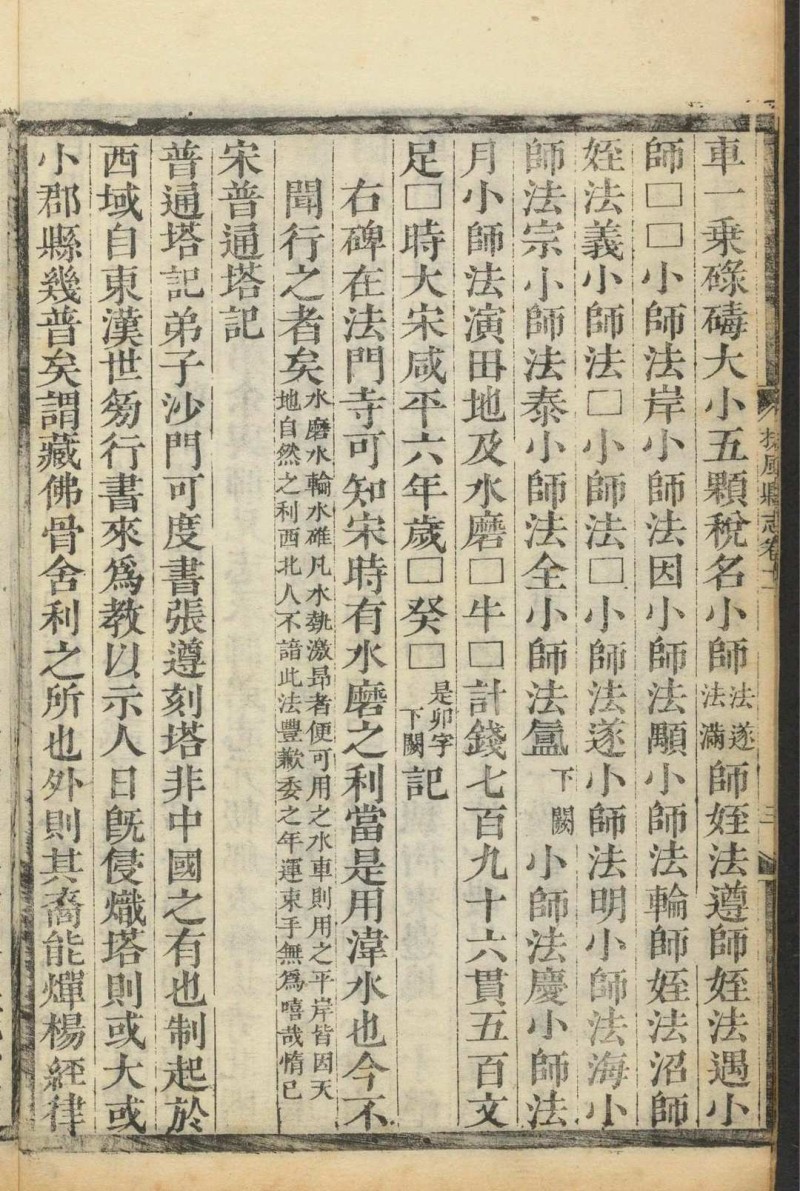 車一乗碌碡大小五顆稅名小師法遂法滿師姪法遵師姪法遇小
師□□小師法岸小師法因小師法顒小師法輪師姪法沼師
姪法義小師法□小師法□小師法遂小師法明小師法海小
師法宗小師法泰小師法全小師法氳下闕小師法慶小師法
月小師法演田地及水磨□牛□計錢七百九十六貫五百文
足□時大宋咸平六年歲□癸□是卯字下闕記
右碑在法門寺可知宋時有水磨之利當是用湋水也今不
聞行之者矣水磨水輪水碓凡水埶激昂者便可用之水車則用之平岸皆因天地自然之利西北人不諳此法豐歉委之年運束手無爲嘻哉惰已
宋普通塔記
普通塔記弟子沙門可度書張遵刻塔非中國之有也制起於
西域自東漢世茐行書來爲教以示人日旣侵熾塔則或大或
小郡縣幾普矣謂藏佛骨舍利之所也外則其裔能燀楊經律
扶風縣志卷十
三